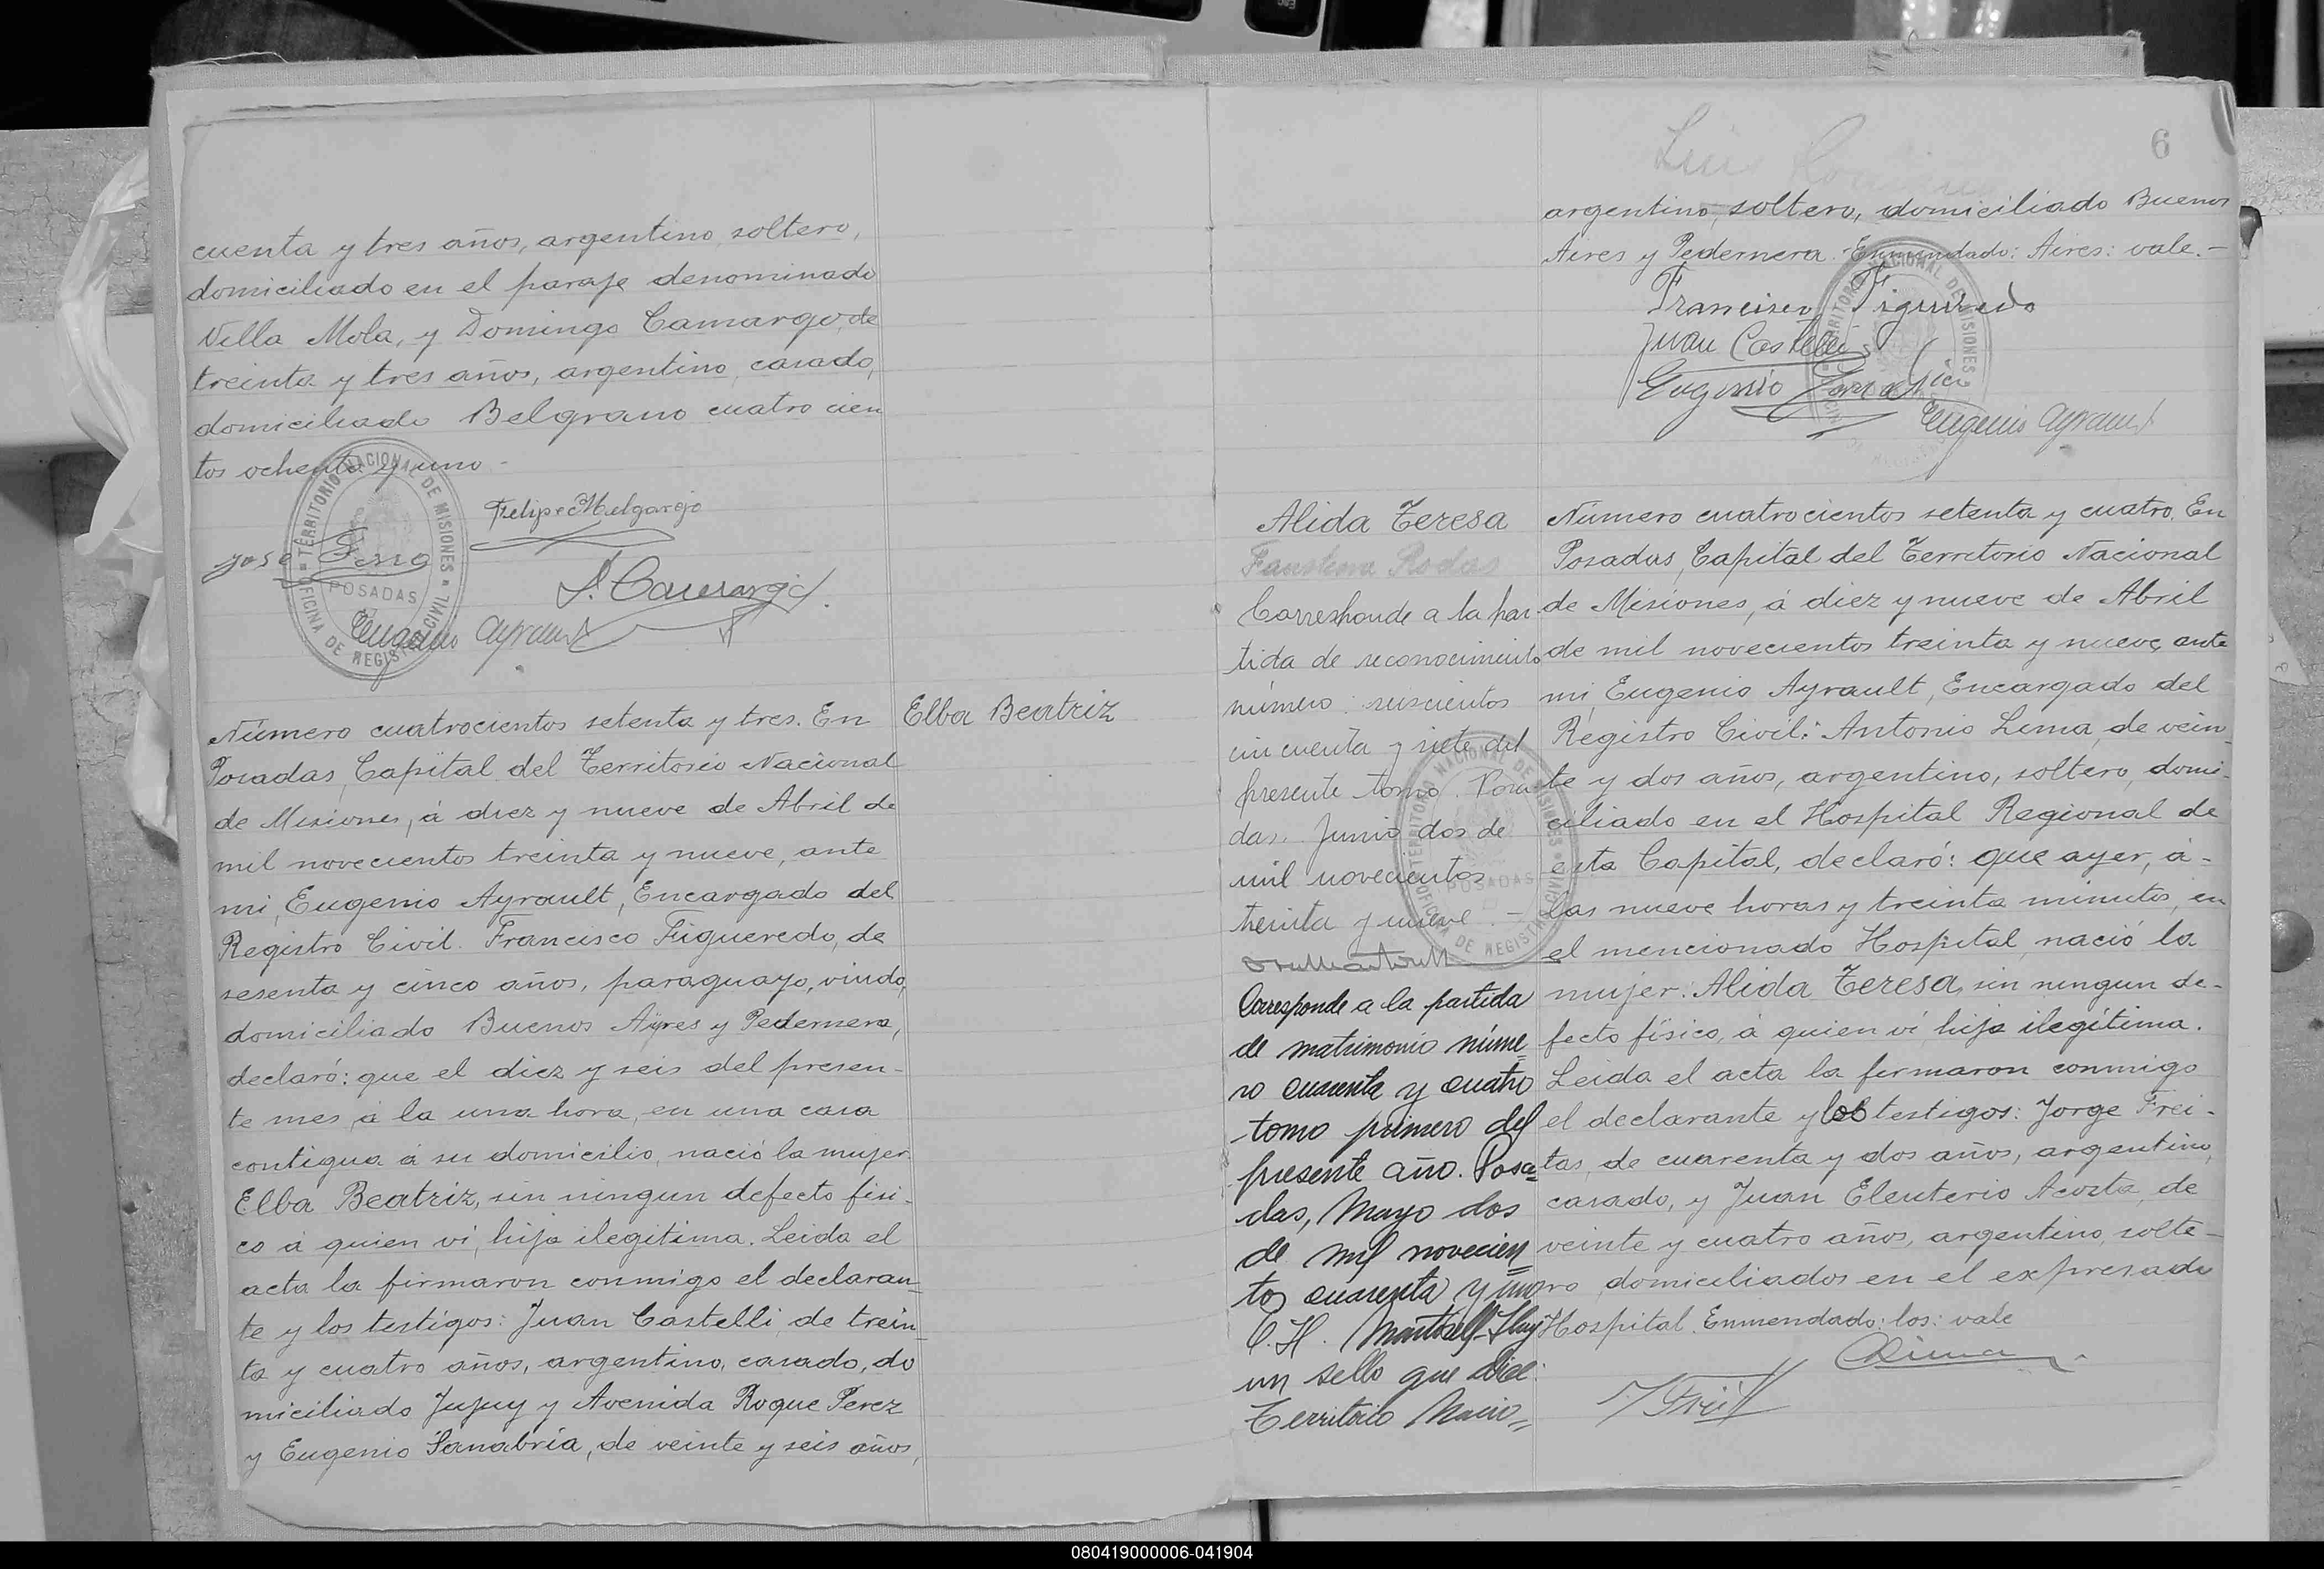 cuenta y tres años, argentino, soltero,
domiciliado en el paraje denominado
Villa Mola, y Domingo Camargo, de
treinta y tres años, argentino, casado,
domiciliado Belgrano cuatrocien
tos ochenta y uno -
Felipe Melgarejo
José
Camargo
TERRITORIO NACIONAL DE MISIONES
POSADAS
OFICINA DE REGISTRO CIVIL
Eugenio Ayrault
Número cuatrocientos setenta y tres. En
Posadas, Capital del Territorio Nacional
de Misiones, á diez y nueve de Abril de
mil novecientos treinta y nueve, ante
mi, Eugenio Ayrault, Encargado del
Registro Civil. Francisco Figueredo, de
sesenta y cinco años, paraguayo, viudo,
domiciliado Buenos Ayres y Pedernera,
declaró: que el diez y seis del presen-
te mes, á la una hora, en una casa
contigua á su domicilio, nació la mujer
Elba Beatriz, sin ningun defecto físi-
co á quien ví, hija ilegítima. Leida el
acta la firmaron conmigo el declaran-
te y los testigos: Juan Castelli, de trein-
ta y cuatro años, argentino, casado, do
miciliado Jujuy y Avenida Roque Perez
y Eugenio Sanabria, de veinte y seis años,
Elba Beatriz
6
argentino, soltero, domiciliado Buenos
Aires y Pedernera. Enmendado: Aires: vale.-
Francisco Figueredo
Juan Castelli
Eugenio Sanabria
Eugenio Ayrault
TERRITORIO NACIONAL DE MISIONES
Alida Teresa
Faustina Rodas
Corresponde a la par-
tida de reconocimiento
número: seiscientos
cincuenta y siete del
presente tomo. Posa-
das. Junio dos de
mil novecientos
treinta y nueve. -
TERRITORIO NACIONAL DE MISIONES
POSADAS
OFICINA DE REGISTRO CIVIL
Corresponde a la partida
de matrimonio núme=
ro cuarenta y cuatro
tomo primero del
presente año. Posa=
das, Mayo dos
de mil novecien
tos cuarenta y uno
C. H. Martorell - Hay
un sello que dice:
Territorio Nacio=
Número cuatrocientos setenta y cuatro. En
Posadas, Capital del Territorio Nacional
de Misiones, á diez y nueve de Abril
de mil novecientos treinta y nueve, ante
mi, Eugenio Ayrault, Encargado del
Registro Civil: Antonio Lima, de vein-
te y dos años, argentino, soltero, domi-
ciliado en el Hospital Regional de
esta Capital, declaró: que ayer, á -
las nueve horas y treinta minutos, en
el mencionado Hospital, nació la
mujer: Alida Teresa, sin ningun de-
fecto físico, á quien ví hija ilegítima.
Leida el acta la firmaron conmigo
el declarante y los testigos: Jorge Frei-
tas, de cuarenta y dos años, argentino,
casado, y Juan Eleuterio Acosta, de
veinte y cuatro años, argentino, solte-
ro, domiciliados en el expresado
Hospital. Enmendado: los: vale
ALima
080419000006-041904